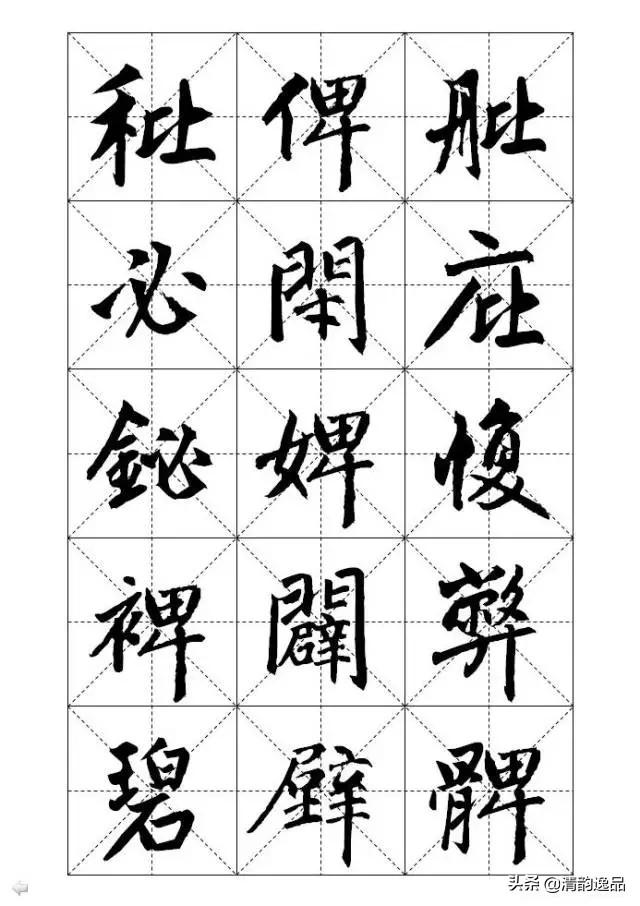 秕 俾 舭
必 閉 庇
鉍 婢 愎
裨 闢 弊
碧 壁 髀
头条 @清韵逸品